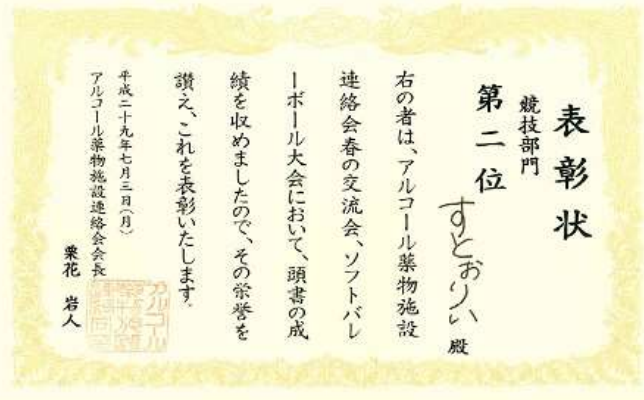 表彰状
競技部門
第二位
すとおりい 殿
右の者は、アルコール薬物施設
連絡会春の交流会、ソフトバレ
ーボール大会において、頭書の成
績を収めましたので、その栄誉を
讃え、これを表彰いたします.
平成二十九年七月三日(月)
アルコール薬物施設連絡会会長
栗花 岩人